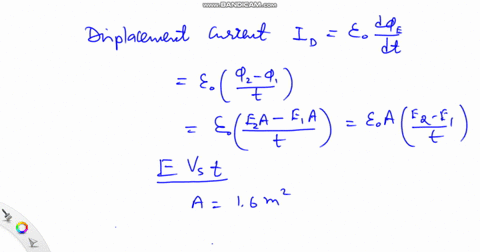 WWW.BANDICAM.COM
Displacement Current I_D = ε₀ dφ_E/dt
= ε₀ (φ₂-φ₁/t)
= ε₀ (E₂A - E₁A/t) = ε₀A (E₂-E₁/t)
E Vs t
A = 1.6 m²